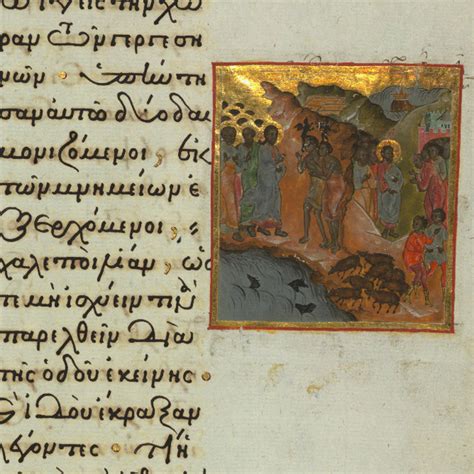 εἰς τὴν χώ
ραν τῶν γεργεση
νῶν. ὑπήντη
σαν αὐτῶ δύο δαι
μονιζόμενοι, ἐκ
τῶν μνημείων ἐ
ξερχόμενοι.
χαλεποὶ λίαν, ὥσ
τε μὴ ἰσχύειν τινὰ
παρελθεῖν διὰ
τῆς ὁδοῦ ἐκείνης.
ἰδοὺ ἔκραξαν
λέγοντες. τί ἡ